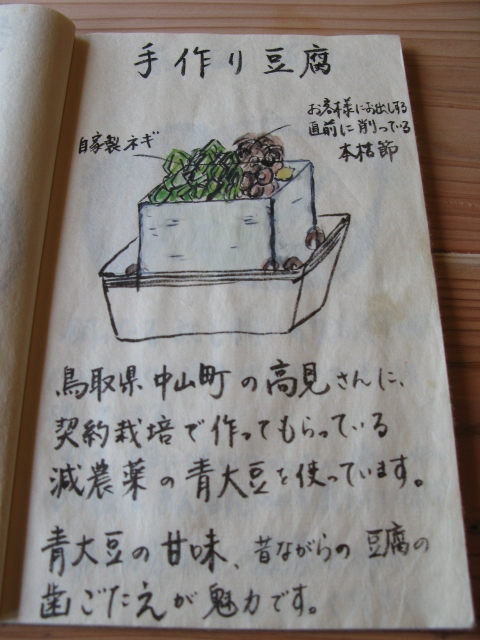 手作り豆腐
自家製ネギ
お客様にお出しする
直前に削っている
本枯節
鳥取県中山町の高見さんに、
契約栽培で作ってもらっている
減農薬の青大豆を使っています。
青大豆の甘味、昔ながらの豆腐の
歯ごたえが魅力です。